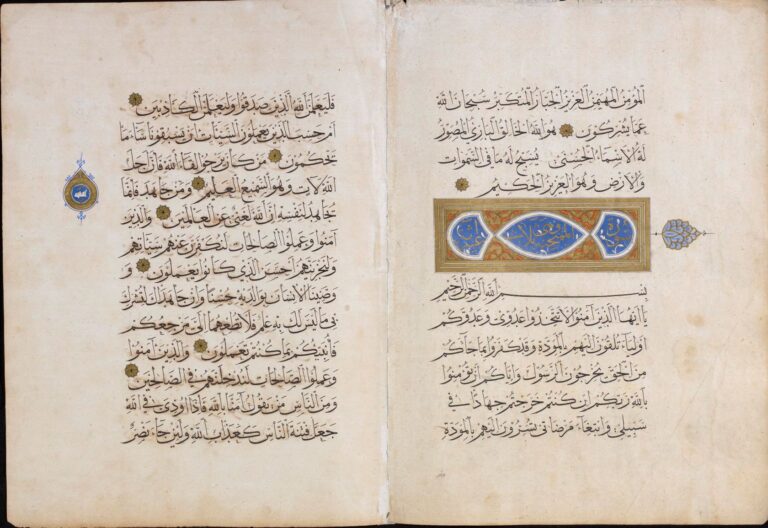 المؤمن المهيمن العزيز الجبار المتكبر سبحان الله
عما يشركون هو الله الخالق البارئ المصور
له الاسماء الحسنى يسبح له ما في السموات
والارض وهو العزيز الحكيم
سورة الممتحنة
بسم الله الرحمن الرحيم
يا ايها الذين آمنوا لا تتخذوا عدوي وعدوكم
اولياء تلقون اليهم بالمودة وقد كفروا بما جاءكم
من الحق يخرجون الرسول واياكم ان تؤمنوا
بالله ربكم ان كنتم خرجتم جهادا في
سبيلي وابتغاء مرضاتي تسرون اليهم بالمودة
فليعلمن الله الذين صدقوا وليعلمن الكاذبين
ام حسب الذين يعملون السيئات ان يسبقونا ساء ما
يحكمون من كان يرجو لقاء الله فان اجل
الله لآت وهو السميع العليم ومن جاهد فانما
يجاهد لنفسه ان الله لغني عن العالمين والذين
آمنوا وعملوا الصالحات لنكفرن عنهم سيئاتهم
ولنجزينهم احسن الذي كانوا يعملون و
وصينا الانسان بوالديه حسنا وان جاهداك لتشرك
بي ما ليس لك به علم فلا تطعهما الي مرجعكم
فأنبئكم بما كنتم تعملون والذين آمنوا
وعملوا الصالحات لندخلنهم في الصالحين
ومن الناس من يقول آمنا بالله فاذا اوذي في الله
جعل فتنة الناس كعذاب الله ولئن جاء نصر